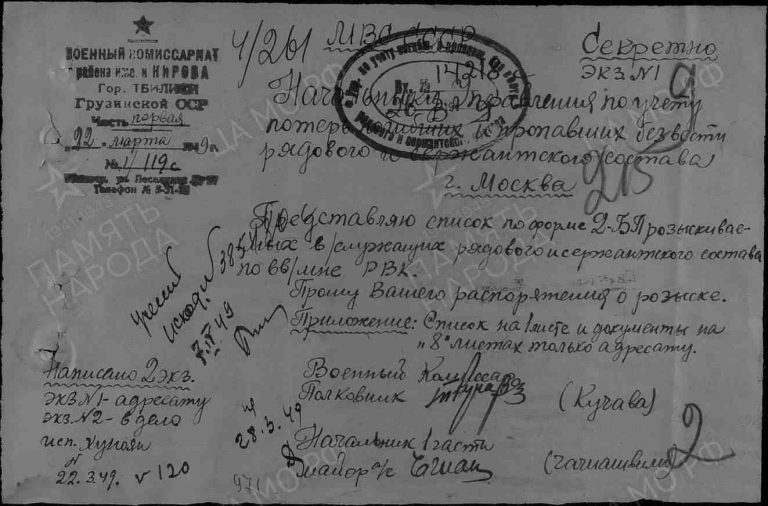 ВОЕННЫЙ КОМИССАРИАТ
района им. КИРОВА
Гор. ТБИЛИСИ
Грузинской ССР
Часть первая
„22" марта 1949 г.
№ 1/119с
Телефон №
4/261
МВС СССР
Секретно
ЭКЗ. N1
14218
Начальнику Управления по учету
потерь погибших и пропавших без вести
рядового и сержантского состава
г. Москва
215
Представляю список по форме 2-БП розыскивае-
мых в/служащих рядового и сержантского состава
по вв/мне РВК.
Прошу Вашего распоряжения о розыске.
Приложение: Список на 1 листе и документы на
„8" листах только адресату.
учтено
исход.
7.IV 49
Написано 2 экз.
экз. N1 - адресату
экз. N2 - в дело
исп.
22.3.49. v 120
28.3.49
971
Военный Комиссар
Полковник
(Кучава)
Начальник 1 части
Майор а/с
(Чачиашвили)
2
ПАМЯТЬ
НАРОДА
ЦАМО.РФ